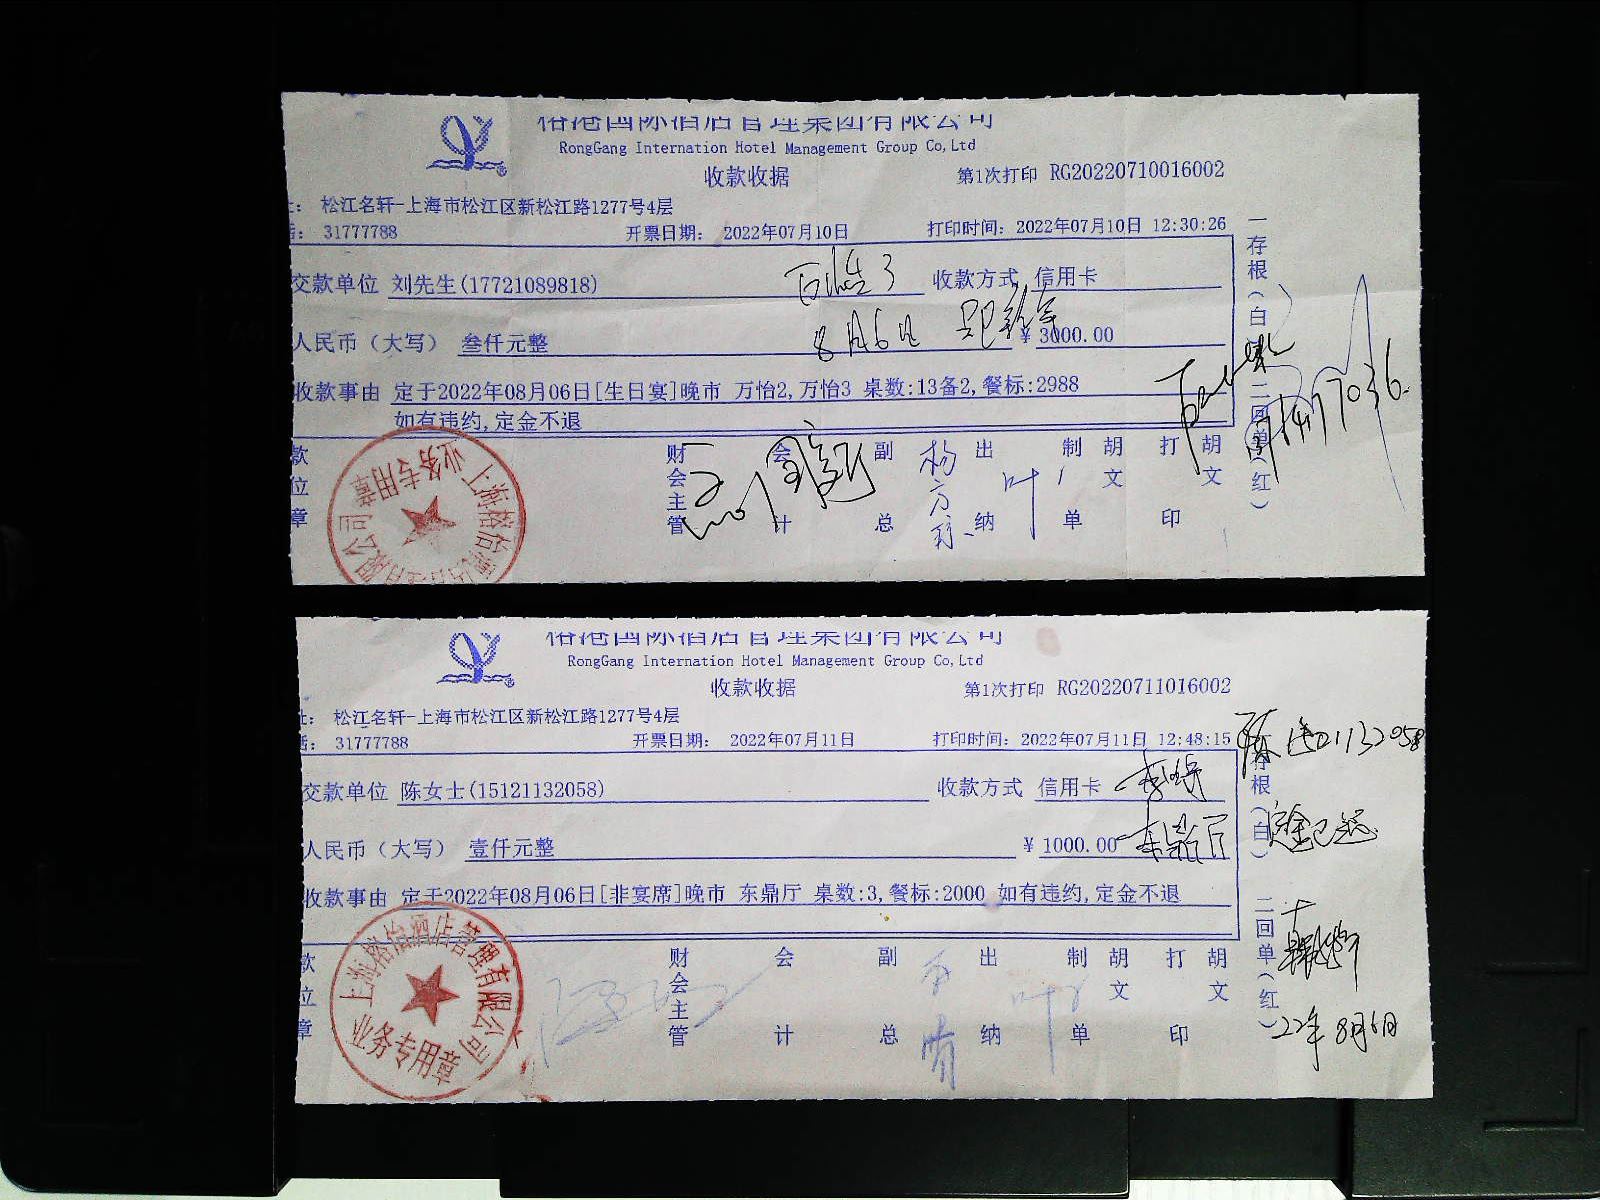 国际酒店管理集团有限公司
RongGang Internation Hotel Management Group Co,Ltd
收款收据 第1次打印 RG20220710016002
松江名轩-上海市松江区新松江路1277号4层
31777788 开票日期: 2022年07月10日 打印时间: 2022年07月10日 12:30:26
交款单位 刘先生(17721089818) 收款方式 信用卡
8月6日
人民币（大写） 叁仟元整 ¥ 3000.00
收款事由 定于2022年08月06日[生日宴]晚市 万怡2,万怡3 桌数:13备2,餐标:2988
如有违约,定金不退
款位章 财会主管 会计 副总 出纳 叶 制单 胡文 打印 胡文
一存根（白） 二回单（红）
业务专用章
国际酒店管理集团有限公司
RongGang Internation Hotel Management Group Co,Ltd
收款收据 第1次打印 RG20220711016002
松江名轩-上海市松江区新松江路1277号4层
31777788 开票日期: 2022年07月11日 打印时间: 2022年07月11日 12:48:15
交款单位 陈女士(15121132058) 收款方式 信用卡
人民币（大写） 壹仟元整 ¥ 1000.00 东鼎厅
收款事由 定于2022年08月06日[非宴席]晚市 东鼎厅 桌数:3,餐标:2000 如有违约,定金不退
款位章 财会主管 会计 副总 出纳 叶 制单 胡文 打印 胡文
存根（白） 二回单（红）
定金已退
22年8月6日
酒店管理有限公司
业务专用章